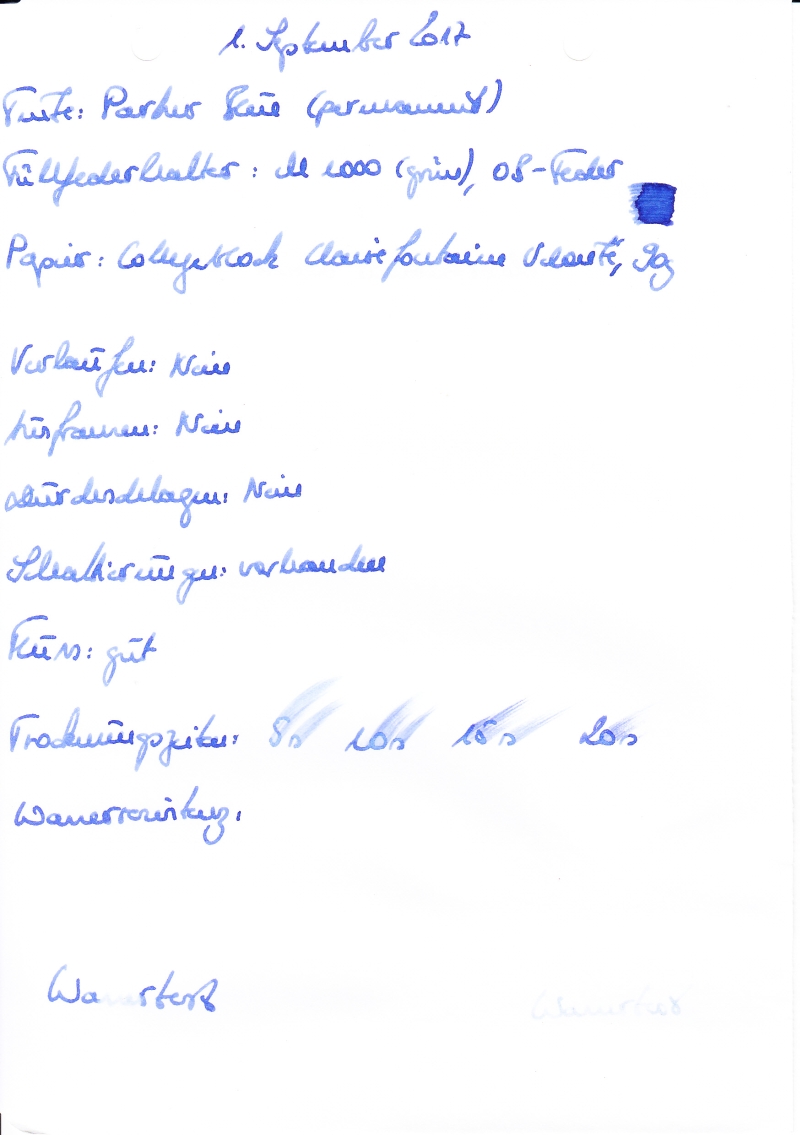 1. September 2017
Tinte: Parker Blau (permanent)
Füllfederhalter: M 1000 (grün), OB-Feder
Papier: Collegeblock Clairefontaine Velouté, 90g
Verlaufen: Nein
Ausfransen: Nein
Durchschlagen: Nein
Schattierungen: vorhanden
Fluss: gut
Trocknungszeiten: 5s 10s 15s 20s
Wasserresistenz:
Wassertest Wassertest